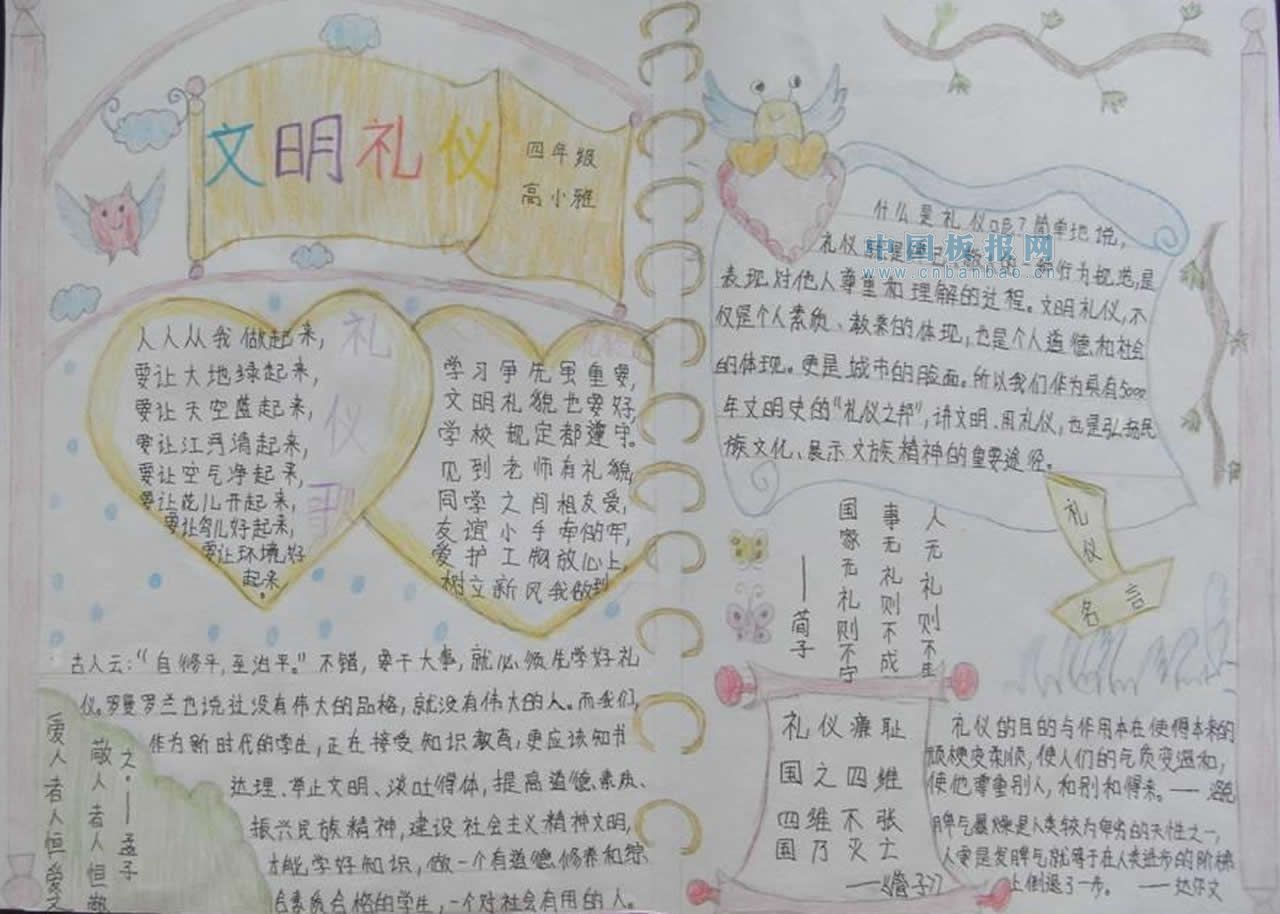 文明礼仪
四年级
高小雅
礼仪歌
人人从我做起来,
要让大地绿起来,
要让天空蓝起来,
要让江河清起来,
要让空气净起来,
要让花儿开起来,
要让鸟儿好起来,
要让环境好
起来。
学习争先虽重要,
文明礼貌也要好,
学校规定都遵守。
见到老师有礼貌,
同学之间相友爱,
友谊小手牵的牢,
爱护工物放心上,
树立新风我做到
古人云:“自修平,至治平。”不错,要干大事,就必须先学好礼
仪。罗曼罗兰也说过没有伟大的品格,就没有伟大的人。而我们,
作为新时代的学生,正在接受知识教育,更应该知书
达理、举止文明、谈吐得体,提高道德、素质、
振兴民族精神,建设社会主义精神文明,
才能学好知识,做一个有道德、修养和综
合素质合格的学生,一个对社会有用的人。
爱人者人恒爱
之
敬人者人恒敬
之·——孟子
什么是礼仪呢?简单地说,
礼仪就是
行为规范,是
表现对他人尊重和理解的过程。文明礼仪,不
仅是个人素质、教养的体现,也是个人道德和社会
的体现。更是城市的脸面。所以我们作为具有5000
年文明史的“礼仪之邦”,讲文明、用礼仪,也是弘扬民
族文化、展示文族精神的重要途径。
中国板报网
www.cnbanbao.cn
礼仪
名言
人无礼则不生
事无礼则不成
国家无礼则不宁
——荀子
礼仪廉耻
国之四维
四维不张
国乃灭亡
——《管子》
礼仪的目的与作用本在使得本来的
顽梗变柔顺,使人们的气质变温和,
使他尊重别人,和别和得来。——
脾气暴燥是人类较为卑劣的天性之一,
人要是发脾气就等于在人类进步的阶梯
上倒退了一步。——达尔文